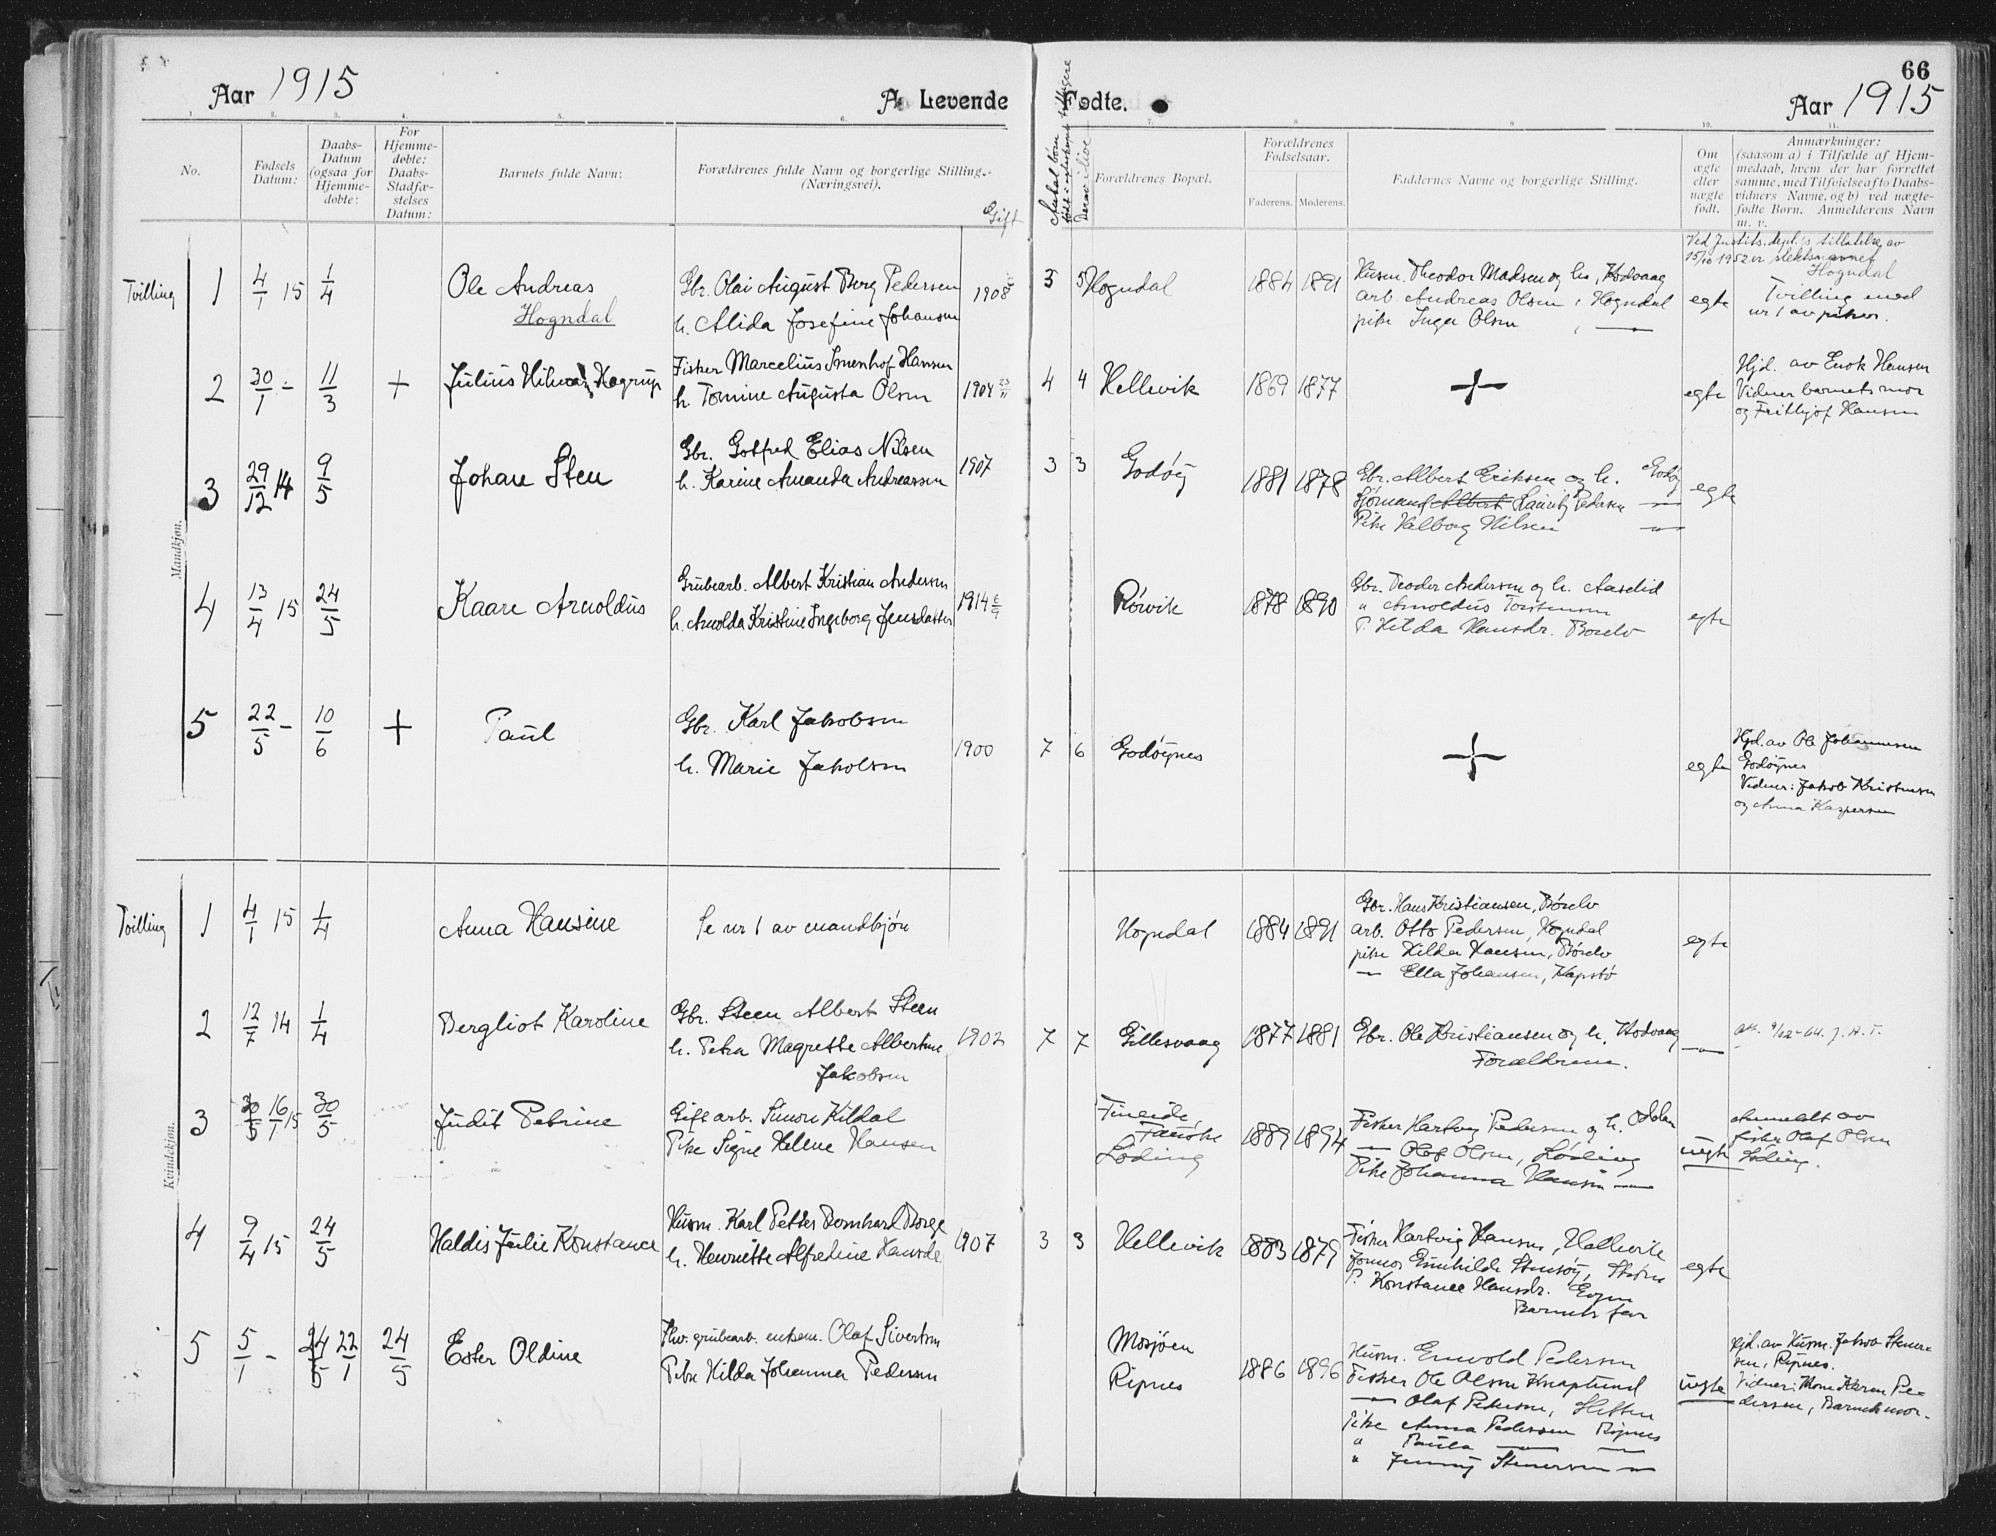 66
Aar 1915
A. Levende Fødte.
Aar 1915
No.
Fødsels Datum:
Daabs-Datum (ogsaa for Hjemmedøbte:
For Hjemmedøbte: Daabs-Stadfæstelses Datum:
Barnets fulde Navn:
Forældrenes fulde Navn og borgerlige Stilling. (Næringsvei).
Gift
Antal børn
Derav i live
Forældrenes Bopæl.
Forældrenes Fødselsaar.
Faderens. Moderens.
Faddernes Navne og borgerlige Stilling.
Om ægte eller nægte født.
Anmærkninger:
(saasom a) i Tilfælde af Hjemmedaab, hvem der har forrettet samme, med Tilføielse af to Daabsvidners Navne, og b) ved nægtefødte Børn. Anmelderens Navn m. v.
Mandkjøn.
Tvilling 1 4/1 15 1/4
Ole Andreas
Hogndal
Gbr. Olai August Berg Pedersen
h. Alida Josefine Johansen
1908
3 5 Hogndal 1884 1891
Husm. Theodor Madsen og h., Hodvaag
arb. Andreas Olsen, Hogndal
pike Inga Olsen, —
egte
Ved Justits.dept.s tillatelse av
15/10 1952 er slektsnavnet
Hogndal
Tvilling med
nr 1 av piker.
2 30/1 - 11/3 +
Julius Hilmar Hagrup
Fisker Marcelius Hansen
h. Tomine Augusta Olsen
1904
4 4 Hellevik 1869 1877
+
egte
Hjd. av Enok Hansen
Vidner barnets mor
og Frithjof Hansen
3 29/12 14 9/5
Johan Sten
Gbr. Gotfred Elias Nilsen
h. Karine Amanda Andreassen
1907
3 3 Godøy 1881 1878
Gbr. Albert Eriksen og h. Godøy
Sjømand Albert Lauritz Pedersen —
Pike Valborg Nilsen —
egte
4 13/4 15 24/5
Kaare Arnoldus
Grubearb. Albert Kristian Andersen
h. Arnolda Kristine Ingeborg Jensdatter
1914 6/9
Rørvik 1878 1890
Gbr. Teodor Andersen og h. Aaselid
" Arnoldus Torstensen
P. Hilda Hansdr. Boselv
egte
5 22/5 - 10/6 +
Paul
Gbr. Karl Jakobsen
h. Marie Jakobsen
1900
7 6 Godøynes
+
egte
Hjd. av Ole Johannesen
Godøynes
Vidner: Jakob Kristensen
og Anna Kaspersen
Kvindekjøn.
Tvilling 1 4/1 15 1/4
Anna Hansine
Se nr 1 av mandkjøn
Hogndal 1884 1891
Gbr. Hans Kristiansen, Børelv
arb. Otto Pedersen, Hogndal
pike Hilda Hansen, Børelv
— Ella Johansen, Kapstø
egte
2 12/7 14 1/4
Bergliot Karoline
Gbr. Steen Albert Steen
h. Petra Magrethe Albertine
Jakobsen
1902
7 7 Gillesvaag 1877 1881
Gbr. Ole Kristiansen og h. Hodvaag
Forældrene.
—
att. 9/12-64. J. A. T.
3 16/1 15 30/5
Judit Petrine
Gift arb. Simon Kildal
Pike Signe Helene Hansen
Fineide
Fauske
Løding
1889 1894
Fisker Hartvig Pedersen og h.
— Olaf Olsen, Løding
Pike Johanna Hansen —
uegte
Anmeldt av
fisker Olaf Olsen
Løding.
4 9/4 15 24/5
Haldis Julie Konstance
Husm. Karl Petter Bernhard Borge
h. Henriette Alfredine Hansdr.
1907
3 3 Hellevik 1883 1879
Fisker Hartvig Hansen, Hellevik
Jomfru
P. Konstance Hansdr. Evjen
Barnets far
egte
5 5/1 - 24/5 22/1 24/5
Ester Oldine
grubearb. enkem. Olaf Sivertsen
Pike Hilda Johanna Pedersen
Mosjøen
Ripnes
1886 1896
Husm. Enevold Pedersen
Fisker Ole Olsen Knaplund
— Olaf Petersen,
Pike Anna Pedersen Ripnes
" Paula — —
" Jenny Stenersen —
uegte
Hjd. av Husm. Jakob Stener-
sen, Ripnes.
Vidner: Mone Karen Pe-
dersen, Barnets mor.